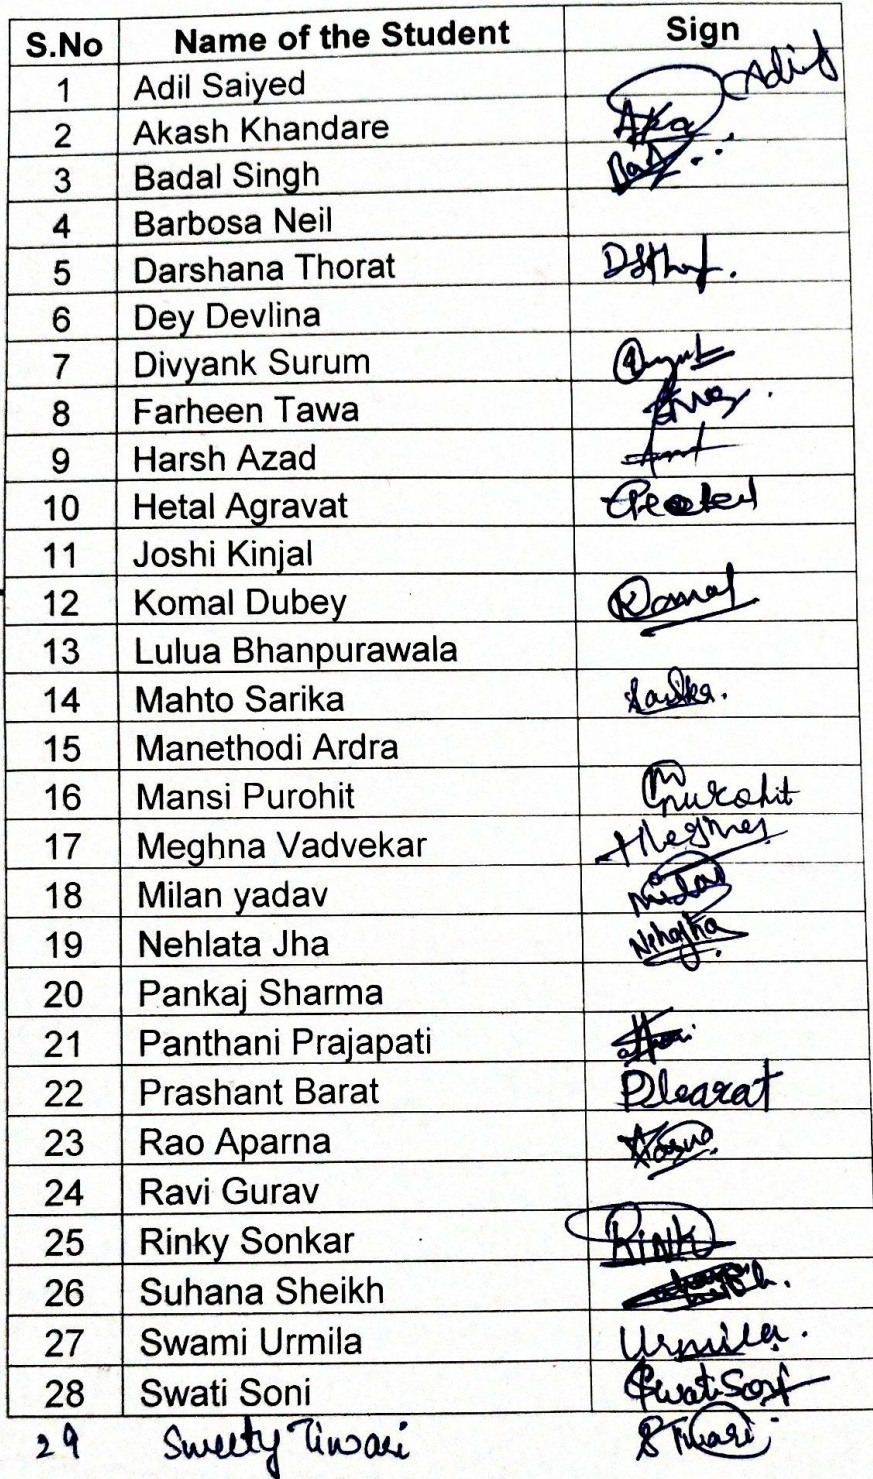 S.No Name of the Student Sign
1 Adil Saiyed Adil
2 Akash Khandare
3 Badal Singh
4 Barbosa Neil
5 Darshana Thorat
6 Dey Devlina
7 Divyank Surum
8 Farheen Tawa
9 Harsh Azad
10 Hetal Agravat
11 Joshi Kinjal
12 Komal Dubey Komal
13 Lulua Bhanpurawala
14 Mahto Sarika Sarika.
15 Manethodi Ardra
16 Mansi Purohit Mpurohit
17 Meghna Vadvekar
18 Milan yadav Milan
19 Nehlata Jha Nehajha
20 Pankaj Sharma
21 Panthani Prajapati
22 Prashant Barat PBarat
23 Rao Aparna
24 Ravi Gurav
25 Rinky Sonkar Rinky
26 Suhana Sheikh
27 Swami Urmila Urmila.
28 Swati Soni Swati Soni
29 Sweety Tiwari STiwari